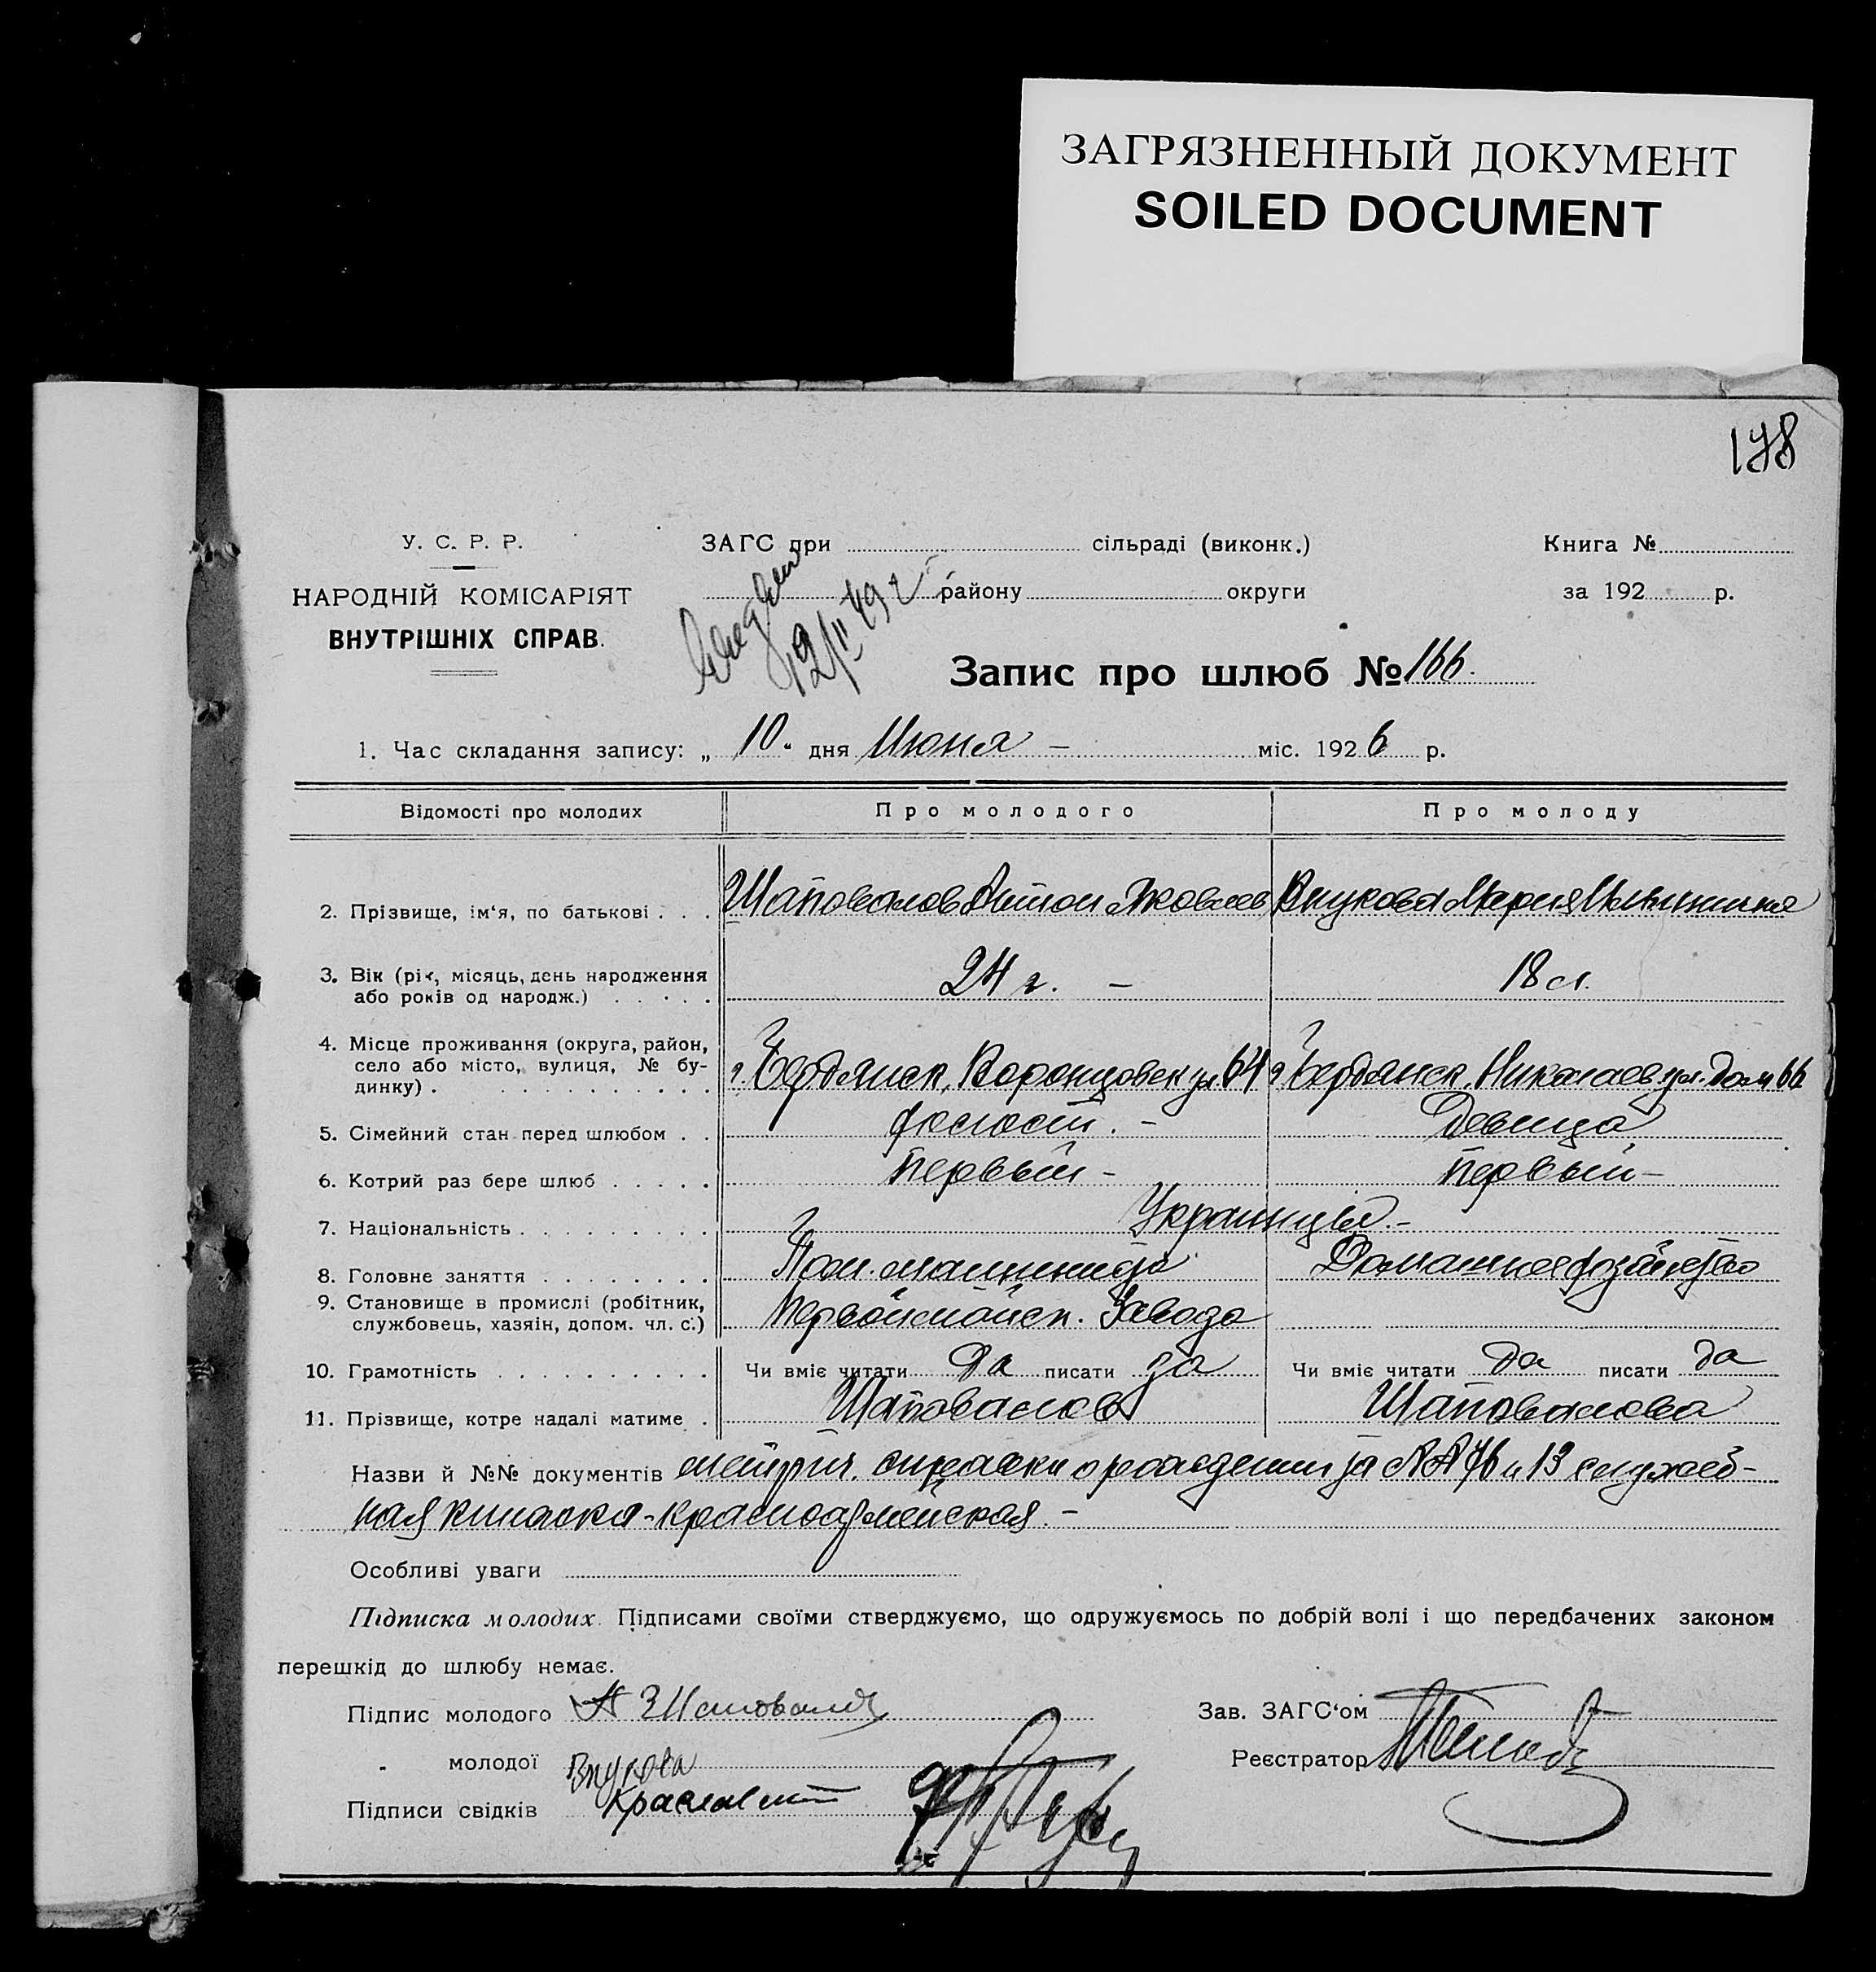 ЗАГРЯЗНЕННЫЙ ДОКУМЕНТ
SOILED DOCUMENT
178
У. С. Р. Р.
НАРОДНІЙ КОМІСАРІЯТ
ВНУТРІШНІХ СПРАВ.
ЗАГС при сільраді (виконк.)
району округи
Книга №
за 192 р.
Запис про шлюб № 166.
1. Час складання запису: „ 10 " дня Июня - міс. 1926 р.
Відомості про молодих Про молодого Про молоду
2. Прізвище, ім'я, по батькові . . . Шаповалов Антон Яковлев Внукова Мария
3. Вік (рік, місяць, день народження
або років од народж.) . . . . . 24 г. - 18 л.
4. Місце проживання (округа, район,
село або місто, вулиця, № бу-
динку) . . . . . . . . . . . г. Бердянск, Воронцовск ул. 64 г. Бердянск, Николаев. ул. дом 66
5. Сімейний стан перед шлюбом . . холост. - Девица
6. Котрий раз бере шлюб . . . . . Первый - Первый -
7. Національність . . . . . . . . . Украинцы. -
8. Головне заняття . . . . . . . . Пом. машиниста Домашнее хозяйство
9. Становище в промислі (робітник,
службовець, хазяін, допом. чл. с.) Первомайск. Завода
10. Грамотність . . . . . . . . . . Чи вміє читати да писати да Чи вміє читати да писати да
11. Прізвище, котре надалі матиме . Шаповалов Шаповалова
Назви й №№ документів метрич. справки о рождении за №№ 76 и 13 служеб-
ная книжка-красноармейская. -
Особливі уваги
Підписка молодих. Підписами своїми стверджуємо, що одружуємось по добрій волі і що передбачених законом
перешкід до шлюбу немає.
Підпис молодого А Шаповалов
Зав. ЗАГС'ом
„ молодої Внукова
Реєстратор
Підписи свідків